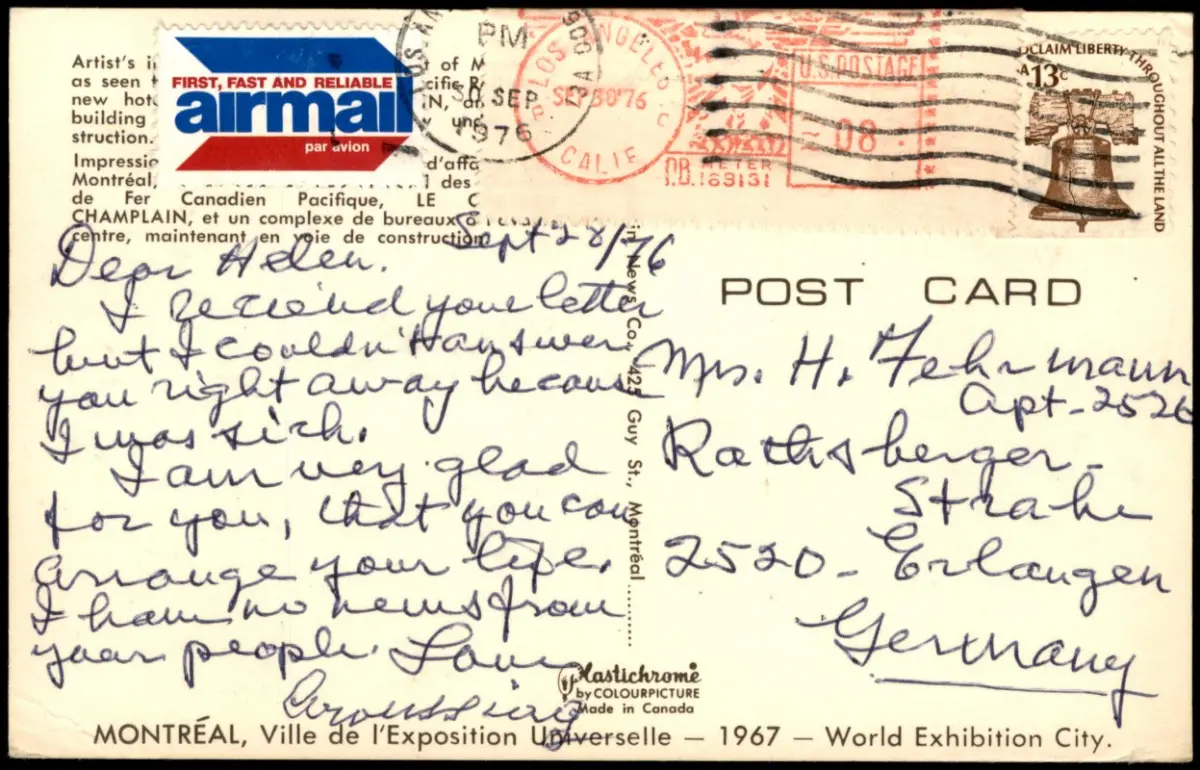 Artist's i
as seen
new hot
building
struction.
Impressio
Montréal,
de Fer Canadien Pacifique, LE C
CHAMPLAIN, et un complexe de bureaux à
centre, maintenant en voie de construction
t of M
cific R
d'affa
1 des
FIRST, FAST AND RELIABLE
airmail
par avion
LOS AN
PM
30 SEP
1976
CA 900
LOS ANGELES
SEP 30 '76
CALIF
U.S. POSTAGE
08
P.B. METER
169131
PROCLAIM LIBERTY THROUGHOUT ALL THE LAND
USA 13c
Sept 28/76
Dear Helen.
I recieved your letter
but I couldn't answer
you right away because
I was sick.
I am very glad
for you, that you can
arrange your life.
I have no news from
your people. Love
in News Co., 425 Guy St., Montréal
POST CARD
Mrs. H. Fehrmann
Apt-2526
Rathsberger-
Straße
2520-Erlangen
Germany
Plastichrome
by COLOURPICTURE
Made in Canada
MONTRÉAL, Ville de l'Exposition Universelle — 1967 — World Exhibition City.